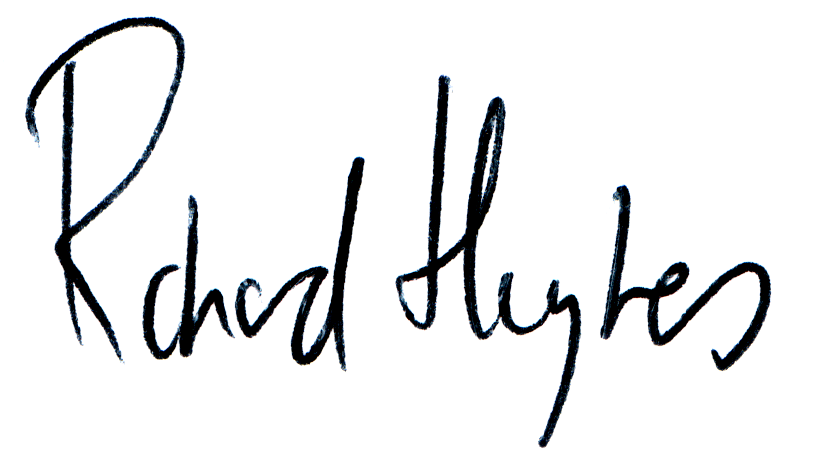 Richard Hughes